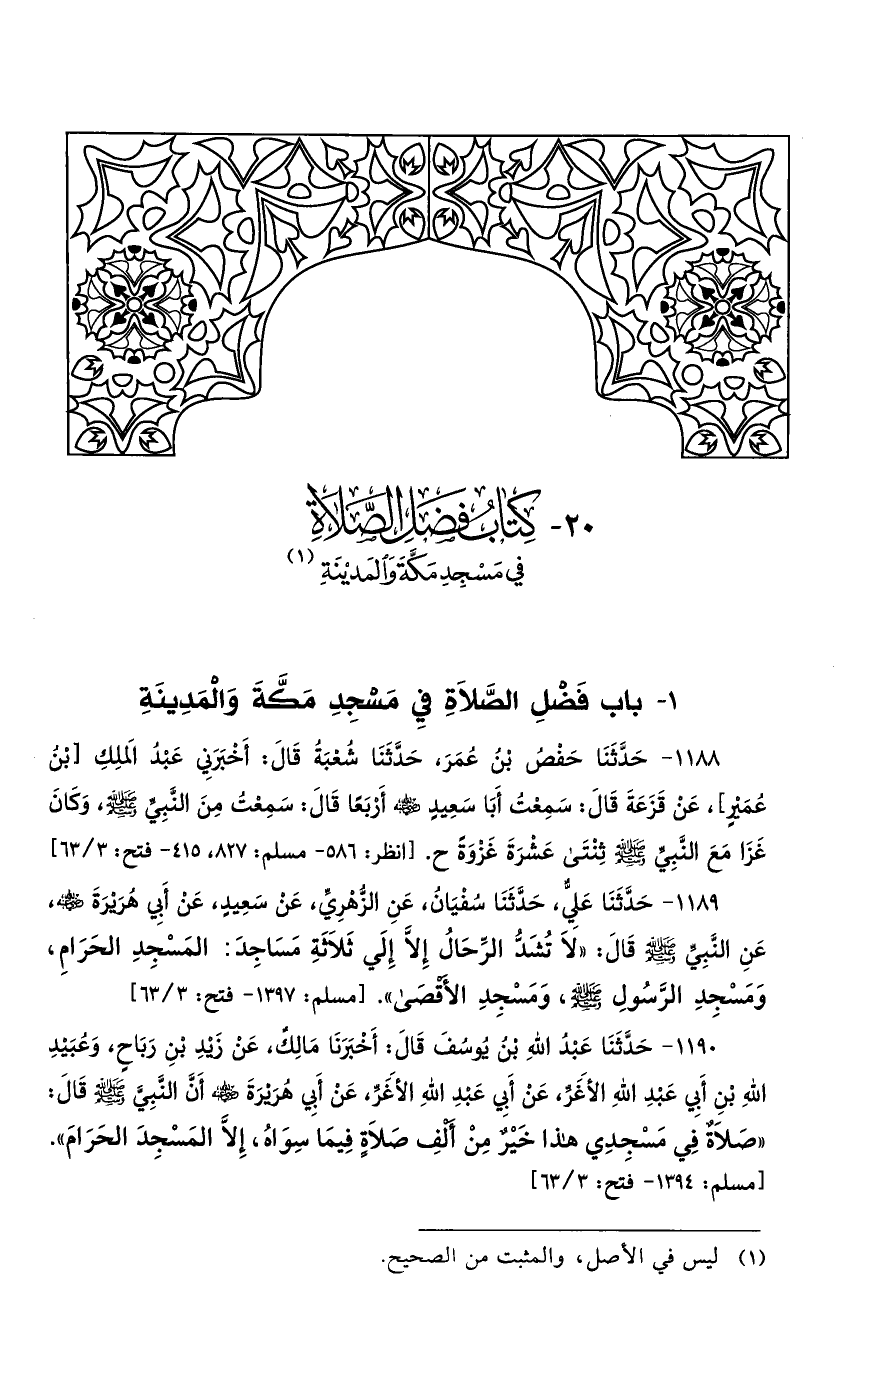 ٢٠- كِتَابُ فَضْلِ الصَّلَاةِ
فِي مَسْجِدِ مَكَّةَ وَالمَدِيْنَةِ (١)
١- باب فَضْلِ الصَّلاَةِ فِي مَسْجِدِ مَكَّةَ وَالْمَدِينَةِ
١١٨٨- حَدَّثَنَا حَفْصُ بْنُ عُمَرَ، حَدَّثَنَا شُعْبَةُ قَالَ: أَخْبَرَنِي عَبْدُ الَملِكِ [بْنُ
عُمَيْرٍ]، عَنْ قَزَعَةَ قَالَ: سَمِعْتُ أَبَا سَعِيدٍ رضي الله عنه أَرْبَعًا قَالَ: سَمِعْتُ مِنَ النَّبِيِّ ﷺ، وَكَانَ
غَزَا مَعَ النَّبِيِّ ﷺ ثِنْتَىٰ عَشْرَةَ غَزْوَةً ح. [انظر: ٥٨٦- مسلم: ٨٢٧، ٤١٥- فتح: ٦٣/٣]
١١٨٩- حَدَّثَنَا عَلِيٌّ، حَدَّثَنَا سُفْيَانُ، عَنِ الزُّهْرِيِّ، عَنْ سَعِيدٍ، عَنْ أَبِي هُرَيْرَةَ رضي الله عنه،
عَنِ النَّبِيِّ ﷺ قَالَ: «لاَ تُشَدُّ الرِّحَالُ إِلاَّ إِلَي ثَلاَثَةِ مَسَاجِدَ: المَسْجِدِ الحَرَامِ،
وَمَسْجِدِ الرَّسُولِ ﷺ، وَمَسْجِدِ الأَقْصَىٰ». [مسلم: ١٣٩٧- فتح: ٦٣/٣]
١١٩٠- حَدَّثَنَا عَبْدُ اللهِ بْنُ يُوسُفَ قَالَ: أَخْبَرَنَا مَالِكٌ، عَنْ زَيْدِ بْنِ رَبَاحٍ، وَعُبَيْدِ
اللهِ بْنِ أَبِي عَبْدِ اللهِ الأَغَرِّ، عَنْ أَبِي عَبْدِ اللهِ الأَغَرِّ، عَنْ أَبِي هُرَيْرَةَ رضي الله عنه أَنَّ النَّبِيَّ ﷺ قَالَ:
«صَلاَةٌ فِي مَسْجِدِي هذا خَيْرٌ مِنْ أَلْفِ صَلاَةٍ فِيمَا سِوَاهُ، إِلاَّ المَسْجِدَ الحَرَامَ».
[مسلم: ١٣٩٤- فتح: ٦٣/٣]
(١) ليس في الأصل، والمثبت من الصحيح.